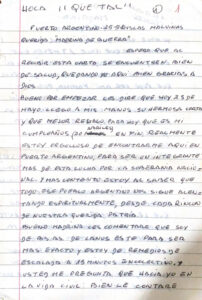 HOLA ¡¡QUE TAL!! 1
PUERTO ARGENTINO 25 MALVINAS
QUERIDA "MADRINA DE GUERRA"
ESPERO QUE AL
RECIBIR ESTA CARTA SE ENCUENTREN BIEN
DE SALUD, QUEDANDO YO AQUI BIEN GRACIAS A
DIOS
BUENO POR EMPEZAR LES DIRE QUE HOY 25 DE
MAYO LLEGO A MIS MANOS SU HERMOSA CARTA
Y QUE MEJOR REGALO PARA HOY QUE ES MI
CUMPLEAÑOS EN MIN REALMENTE
ESTOY ORGULLOSO DE ENCONTRARME AQUI EN
PUERTO ARGENTINO, PARA SER UN INTEGRANTE
MAS DE ESTA LUCHA POR LA SOBERANIA NACIO
NAL. Y MAS CONTENTO ESTOY AL SABER QUE
TODO ESE PUEBLO ARGENTINO NOS SIGUE ALEN-
TANDO ESPIRITUALMENTE, DESDE CADA RINCON
DE NUESTRA QUERIDA PATRIA.
BUENO MADRINA LES COMENTARE QUE SOY
DE BS. AS. DE LANUS ESTE PARA SER
MAS EXACTO Y ESTOY DE REMEDIOS DE
ESCALADA A 15 MINUTOS EN COLECTIVO, Y
USTED ME PREGUNTA QUE HACIA YO EN
LA VIDA CIVIL BIEN LE CONTARE